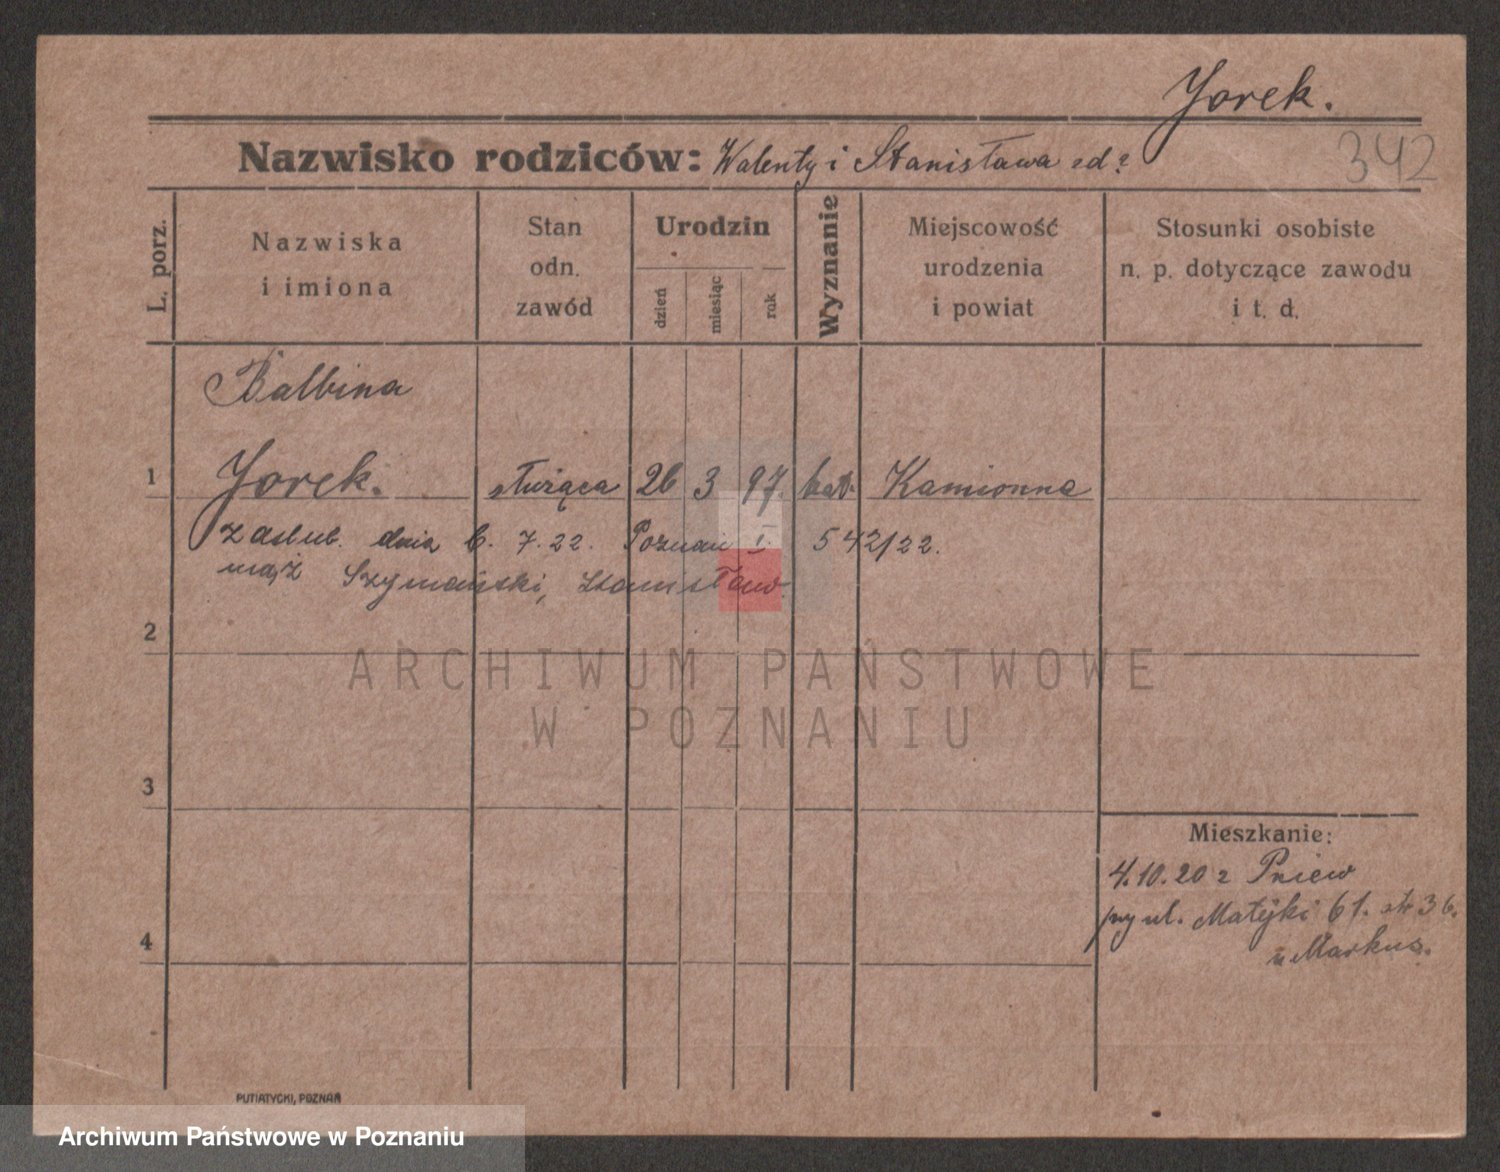 Yorek.
342
Nazwisko rodziców: Walenty i Stanisława zd?
L. porz.
Nazwiska
i imiona
Stan
odn.
zawód
Urodzin
dzień
miesiąc
rok
Wyznanie
Miejscowość
urodzenia
i powiat
Stosunki osobiste
n. p. dotyczące zawodu
i t. d.
Balbina
1 Yorek. służąca 26 3 97. kat. Kamionna
zaślub. dnia 6. 7. 22. Poznań I. 542/22.
mąż Szymański, Stanisław.
2
ARCHIWUM PAŃSTWOWE
W POZNANIU
3
Mieszkanie:
4.10.20 z Pniew
przy ul. Matejki 61. 36.
u Markus.
4
PUTIATYCKI, POZNAŃ
Archiwum Państwowe w Poznaniu